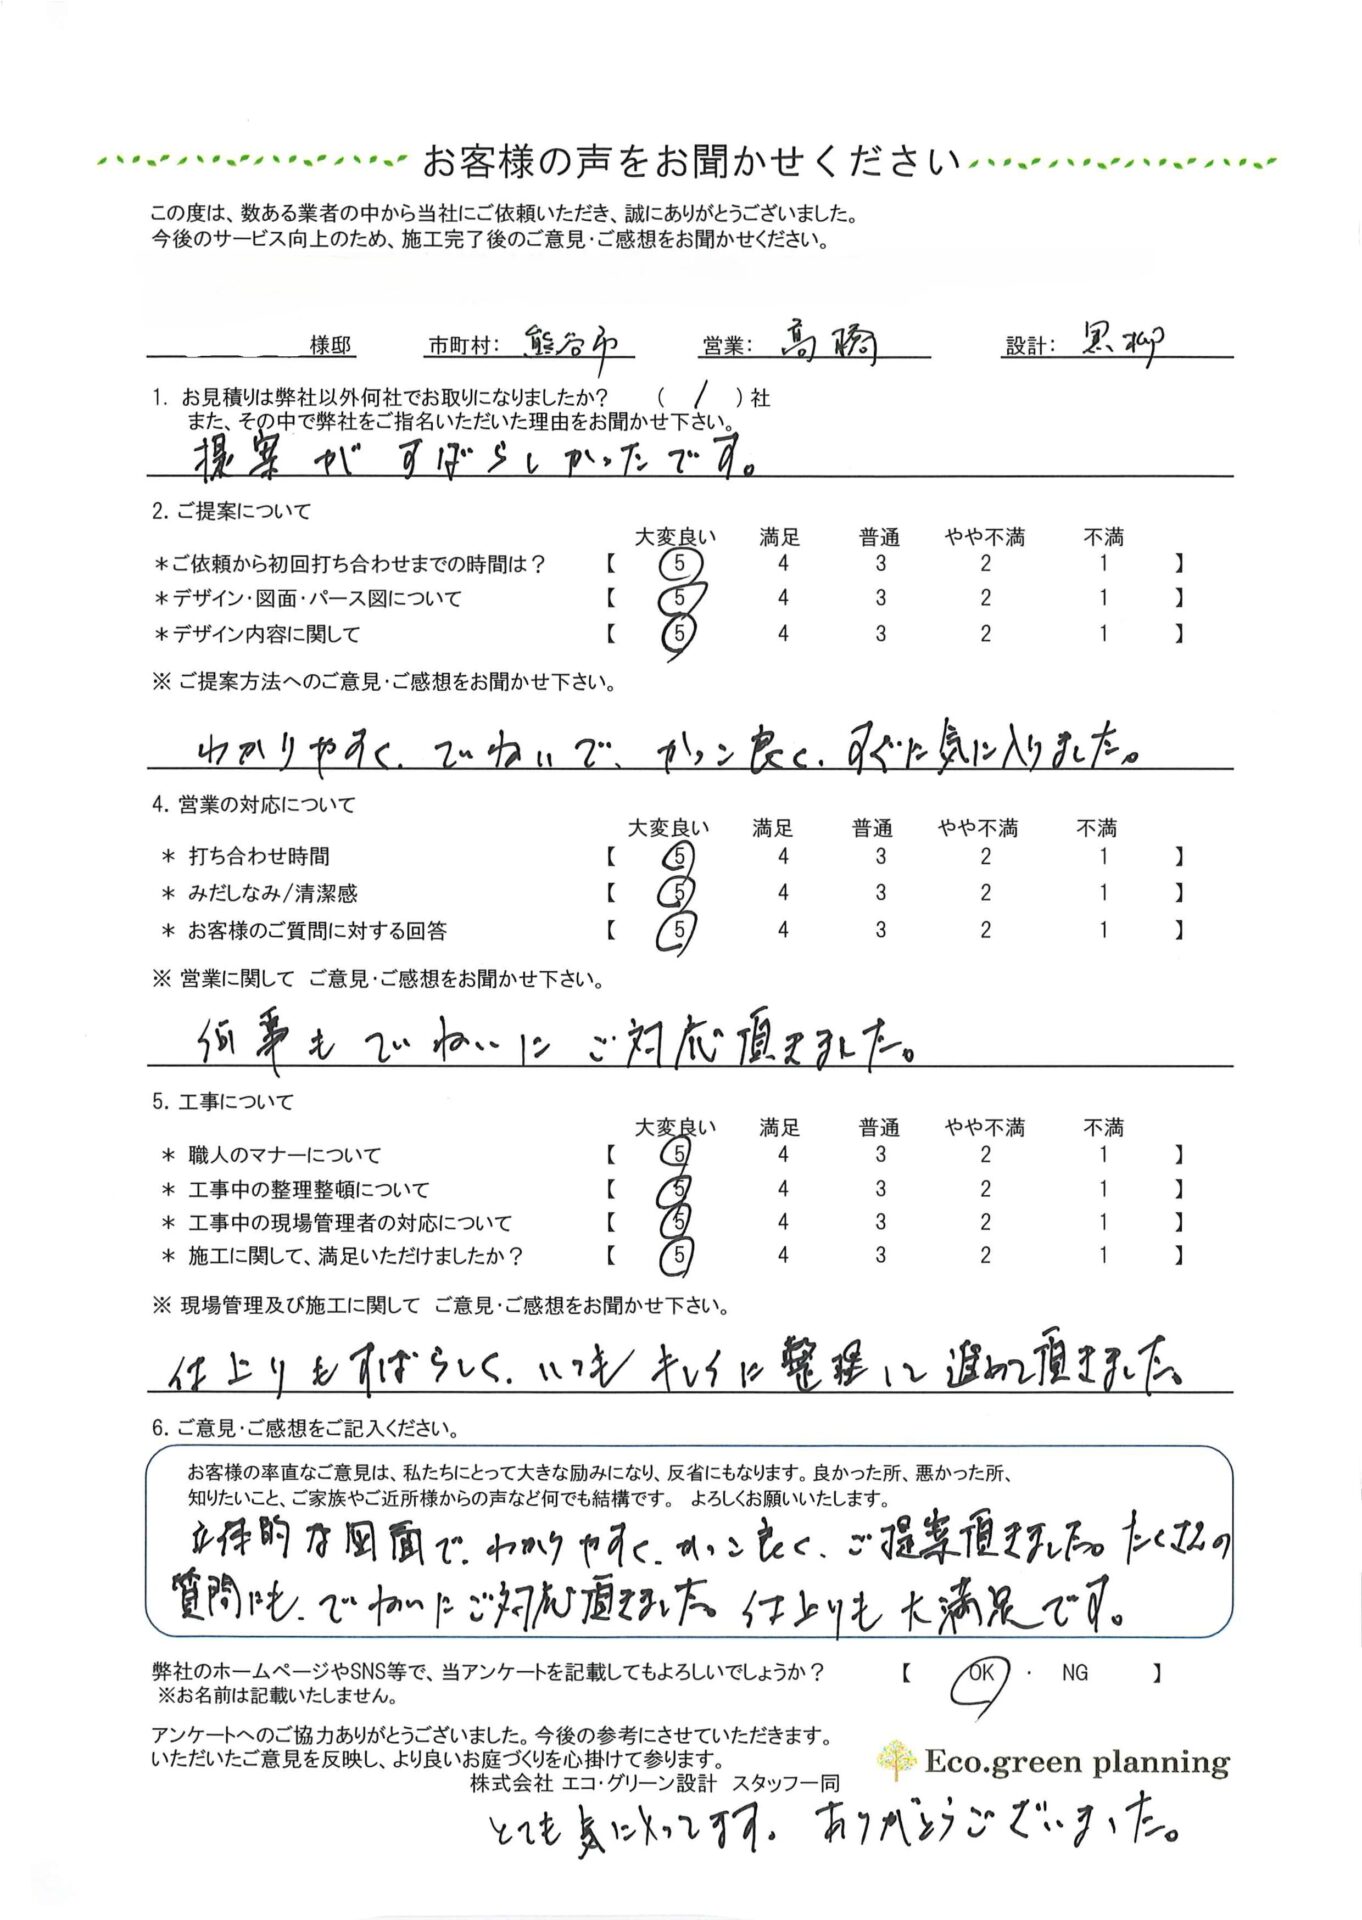 お客様の声をお聞かせください
この度は、数ある業者の中から当社にご依頼いただき、誠にありがとうございました。
今後のサービス向上のため、施工完了後のご意見・ご感想をお聞かせください。
様邸 市町村: 熊谷市 営業: 高橋 設計: 黒柳
1. お見積りは弊社以外何社でお取りになりましたか? ( 1 )社
また、その中で弊社をご指名いただいた理由をお聞かせ下さい。
提案がすばらしかったです。
2. ご提案について
大変良い 満足 普通 やや不満 不満
*ご依頼から初回打ち合わせまでの時間は? 【 5 4 3 2 1 】
*デザイン・図面・パース図について 【 5 4 3 2 1 】
*デザイン内容に関して 【 5 4 3 2 1 】
※ ご提案方法へのご意見・ご感想をお聞かせ下さい。
わかりやすく、ていねいで、かっこ良く、すぐに気に入りました。
4. 営業の対応について
大変良い 満足 普通 やや不満 不満
* 打ち合わせ時間 【 5 4 3 2 1 】
* みだしなみ/清潔感 【 5 4 3 2 1 】
* お客様のご質問に対する回答 【 5 4 3 2 1 】
※ 営業に関して ご意見・ご感想をお聞かせ下さい。
何事もていねいにご対応頂きました。
5. 工事について
大変良い 満足 普通 やや不満 不満
* 職人のマナーについて 【 5 4 3 2 1 】
* 工事中の整理整頓について 【 5 4 3 2 1 】
* 工事中の現場管理者の対応について 【 5 4 3 2 1 】
* 施工に関して、満足いただけましたか? 【 5 4 3 2 1 】
※ 現場管理及び施工に関して ご意見・ご感想をお聞かせ下さい。
仕上りもすばらしく、いつもキレイに整理して進めて頂きました。
6. ご意見・ご感想をご記入ください。
お客様の率直なご意見は、私たちにとって大きな励みになり、反省にもなります。良かった所、悪かった所、
知りたいこと、ご家族やご近所様からの声など何でも結構です。 よろしくお願いいたします。
立体的な図面で、わかりやすく、かっこ良く、ご提案頂きました。たくさんの
質問にも、ていねいにご対応頂きました。仕上りも大満足です。
弊社のホームページやSNS等で、当アンケートを記載してもよろしいでしょうか? 【 OK ・ NG 】
※お名前は記載いたしません。
アンケートへのご協力ありがとうございました。今後の参考にさせていただきます。
いただいたご意見を反映し、より良いお庭づくりを心掛けて参ります。
株式会社 エコ・グリーン設計 スタッフ一同
Eco.green planning
とても気に入ってます。ありがとうございました。